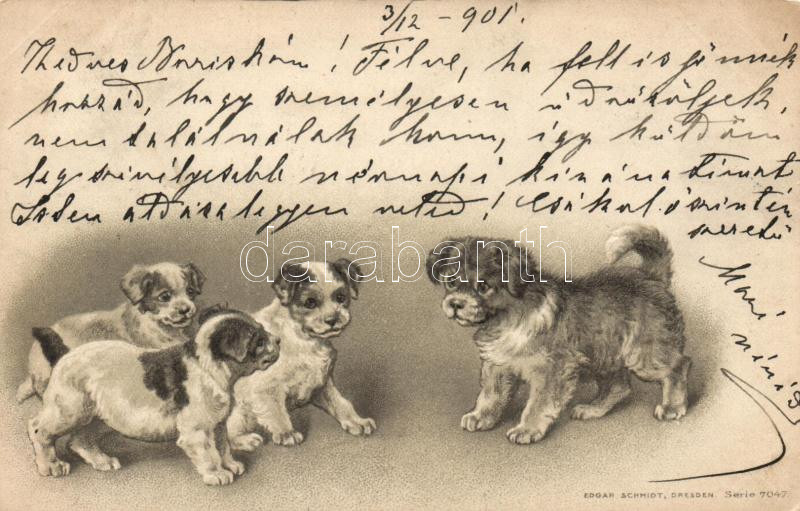 3/12 - 901.
Kedves Boriskám! Félve, ha fell is jönnék
hozzád, hogy személyesen üdvözöljek,
nem találnálak honn, így küldöm
legszivélyesebb névnapi kivánataimat
Isten áldása legyen veled! Csókol őszintén
szerető
Mari
nénéd
darabanth.com
EDGAR SCHMIDT, DRESDEN. Serie 7047